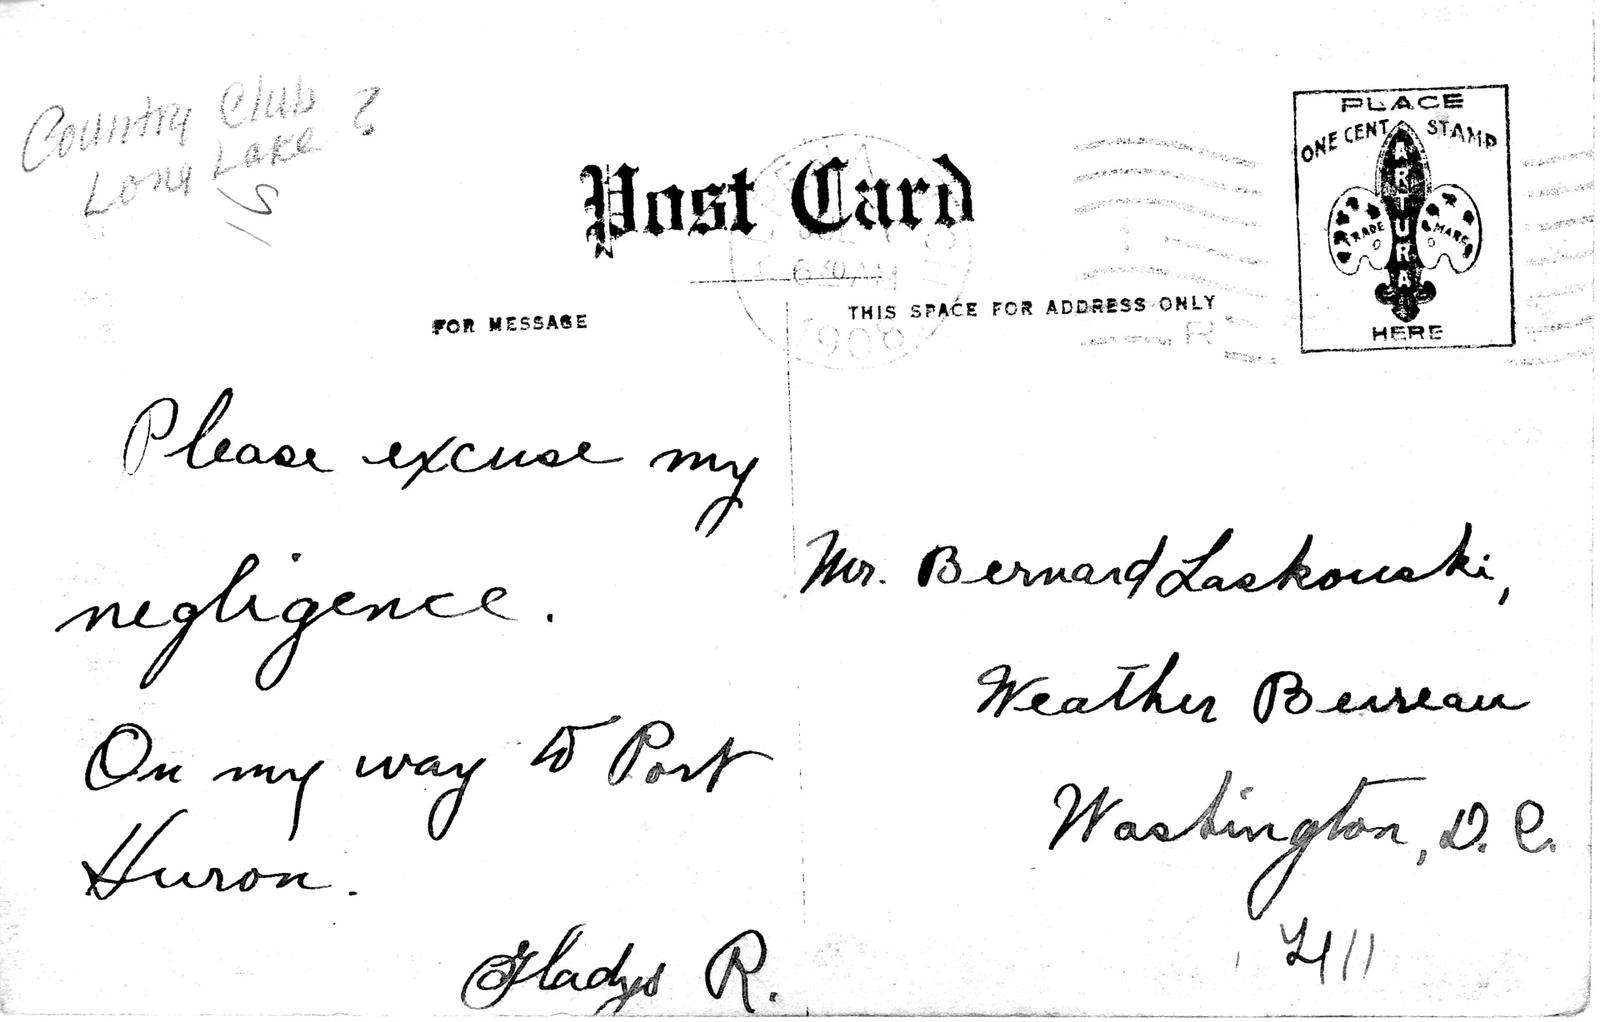 Country Club
Long Lake ?
15
Post Card
6 30 AM
1908
FOR MESSAGE
THIS SPACE FOR ADDRESS ONLY
R
PLACE
ONE CENT STAMP
ARTURA
TRADE MARK
HERE
Please excuse my
negligence.
On my way to Port
Huron.
Gladys R.
Mr. Bernard Laskowski,
Weather Beureau
Washington, D. C.